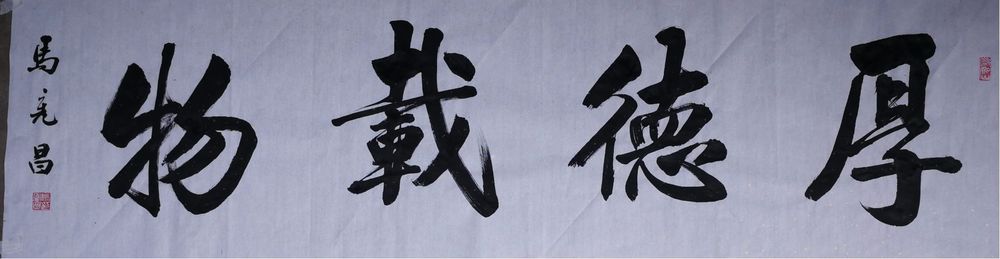 厚德載物
馬克昌